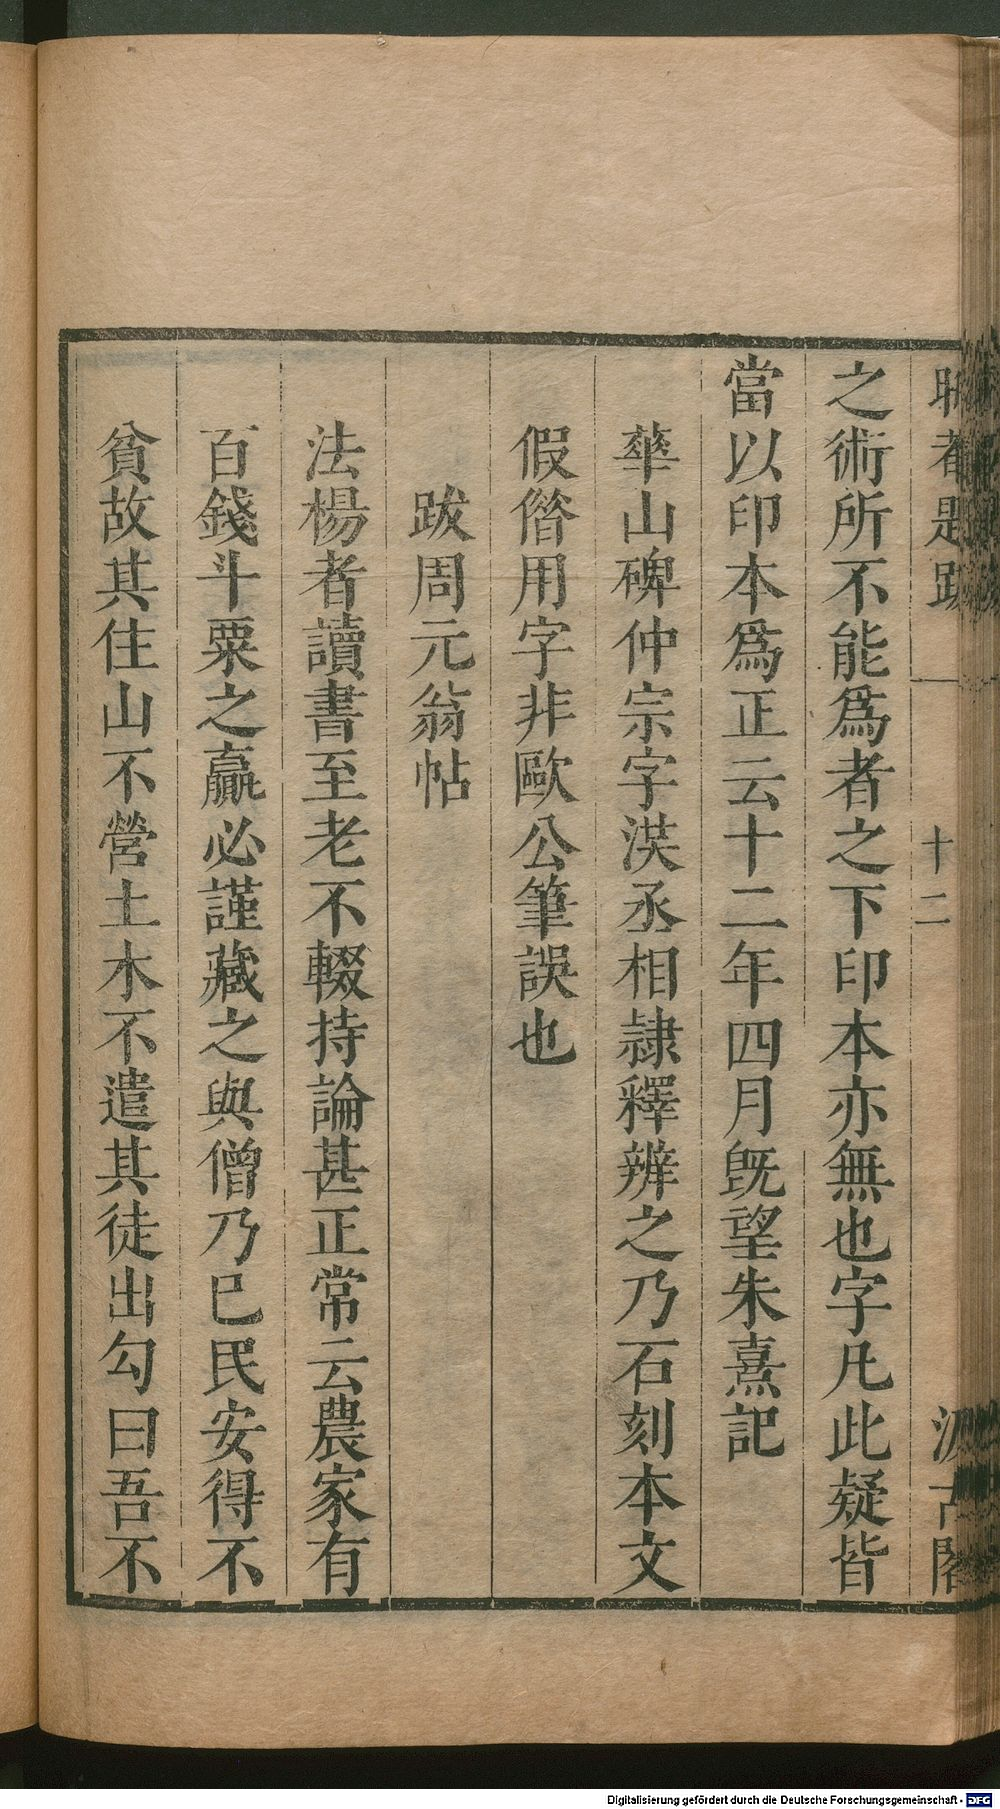 之術所不能爲者之下印本亦無也字凡此疑皆
當以印本爲正云十二年四月旣望朱熹記
華山碑仲宗字漢丞相隷釋辨之乃石刻本文
假偺用字非歐公筆誤也
跋周元翁帖
法楊者讀書至老不輟持論甚正常云農家有
百錢斗粟之贏必謹藏之與僧乃巳民安得不
貧故其住山不營土木不遣其徒出勾曰吾不
十二
Digitalisierung gefördert durch die Deutsche Forschungsgemeinschaft - DFG